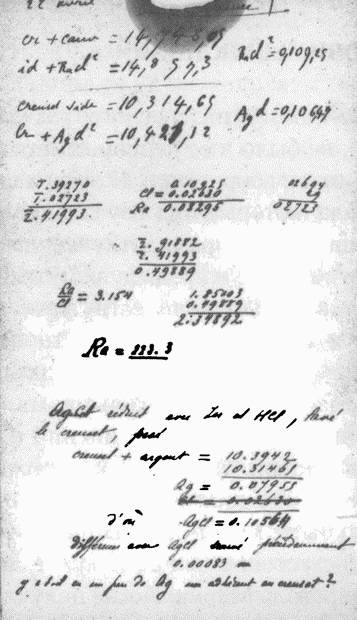 22 avril
cr + = 14,745,05 Rad² = 0,109,25
id + Rad² = 14,8 5 4,3
creuset vide = 10,314,65 Agd = 0,10647
cr + Agd² = 10,421,12
1.39270 0.10925
1.02723 Cl = 0.02630
2.41993 Ra 0.08295 02723
2.91882
2.41993
0.49889
Ra/Cl = 3.154 1.85003
0.49889
2.34892
Ra = 223.3
AgCl réduit avec Zn et HCl, lavé
le creuset, pesé
creuset + argent = 10.3942
10.31461
Ag = 0.07955
Cl = 0.02630
d'où AgCl = 0.10564
différence avec AgCl précédemment
0.00083
y a-t-il eu un peu de Ag adhérent au creuset?